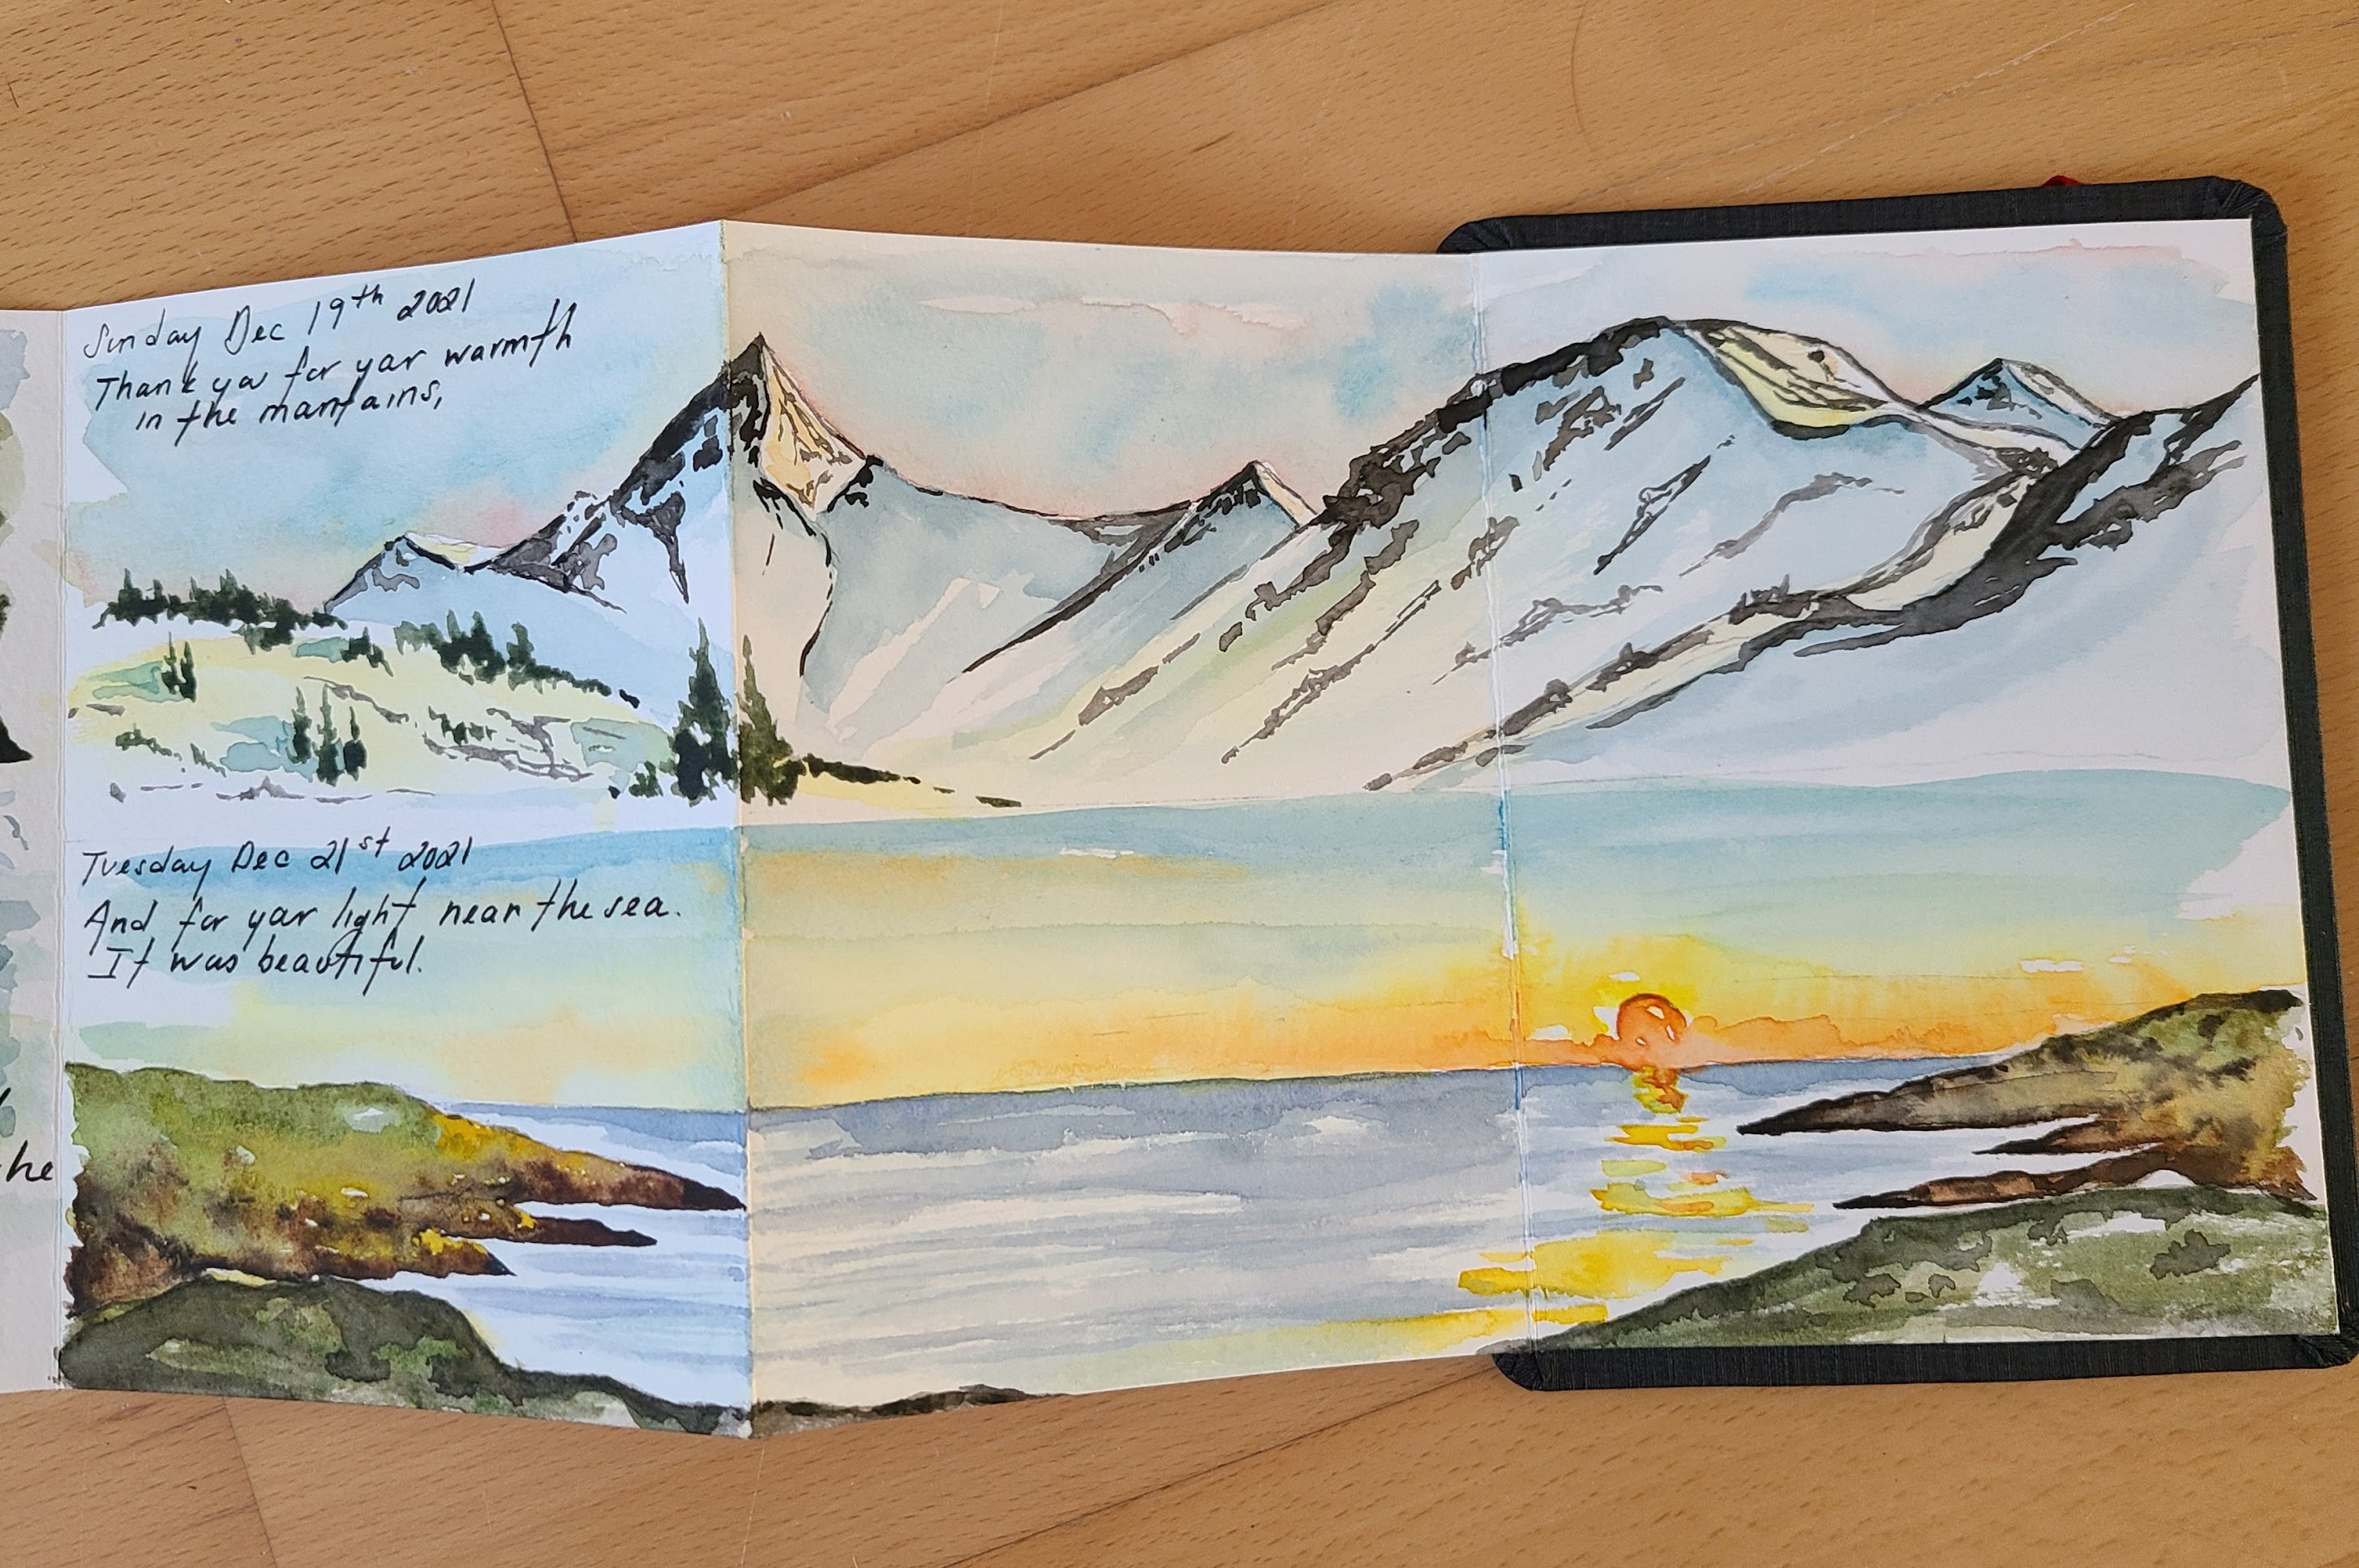 Sunday Dec 19th 2021
Thank you for your warmth
in the mountains,
Tuesday Dec 21st 2021
And for your light near the sea.
It was beautiful.
he